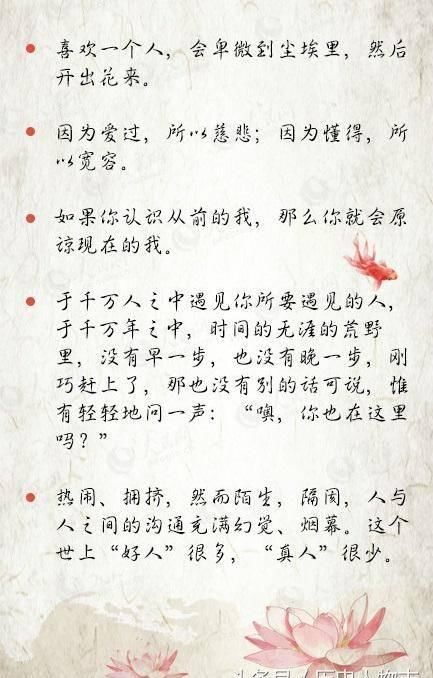 喜欢一个人，会卑微到尘埃里，然后
开出花来。
因为爱过，所以慈悲；因为懂得，所
以宽容。
如果你认识从前的我，那么你就会原
谅现在的我。
于千万人之中遇见你所要遇见的人，
于千万年之中，时间的无涯的荒野
里，没有早一步，也没有晚一步，刚
巧赶上了，那也没有别的话可说，惟
有轻轻地问一声：“噢，你也在这里
吗？”
热闹、拥挤，然而陌生，隔阂，人与
人之间的沟通充满幻觉、烟幕。这个
世上“好人”很多，“真人”很少。